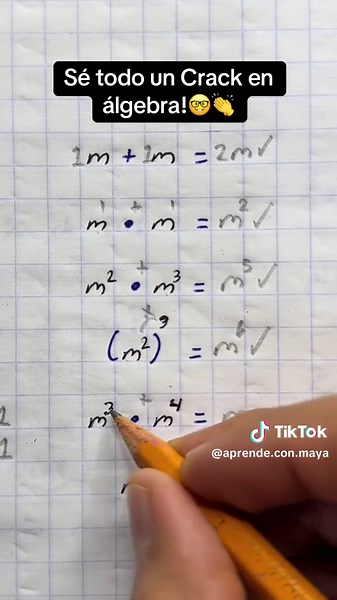 Sé todo un Crack en
álgebra!🤓👏
1m + 1m = 2m✓
m¹ • m¹ = m²✓
m² • m³ = m⁵✓
(m²)³ = m⁶✓
m³ • m⁴ =
TikTok
@aprende.con.maya